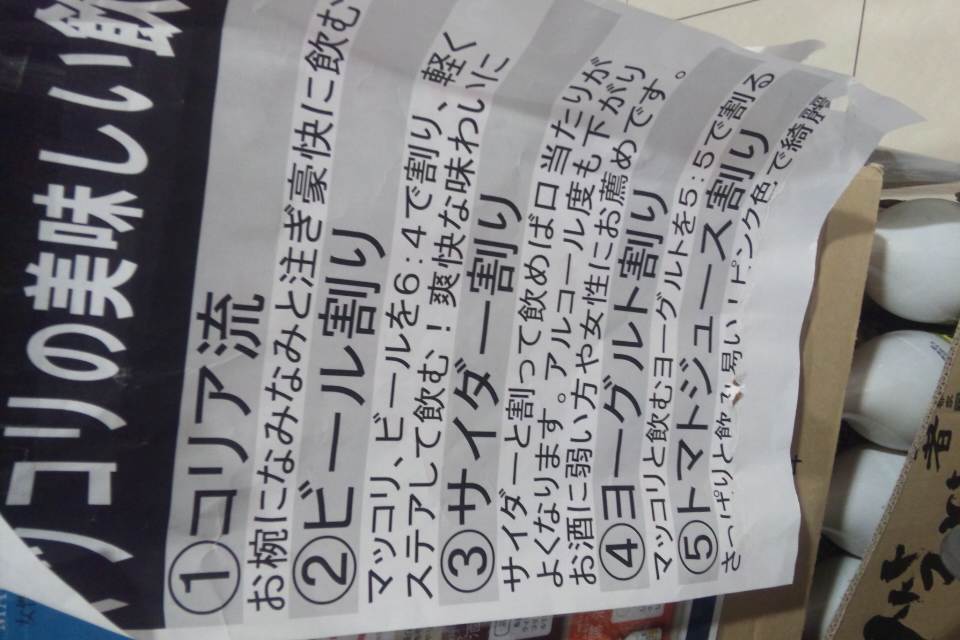 マッコリの美味しい飲
①コリア流
お椀になみなみと注ぎ豪快に飲む
②ビール割り
マッコリ、ビールを6:4で割り、軽く
ステアして飲む！爽快な味わいに
③サイダー割り
サイダーと割って飲めば口当たりが
よくなります。アルコール度も下がり
お酒に弱い方や女性にお薦めです。
④ヨーグルト割り
マッコリと飲むヨーグルトを5:5で割る
⑤トマトジュース割り
さっぱりと飲み易い！ピンク色で綺麗